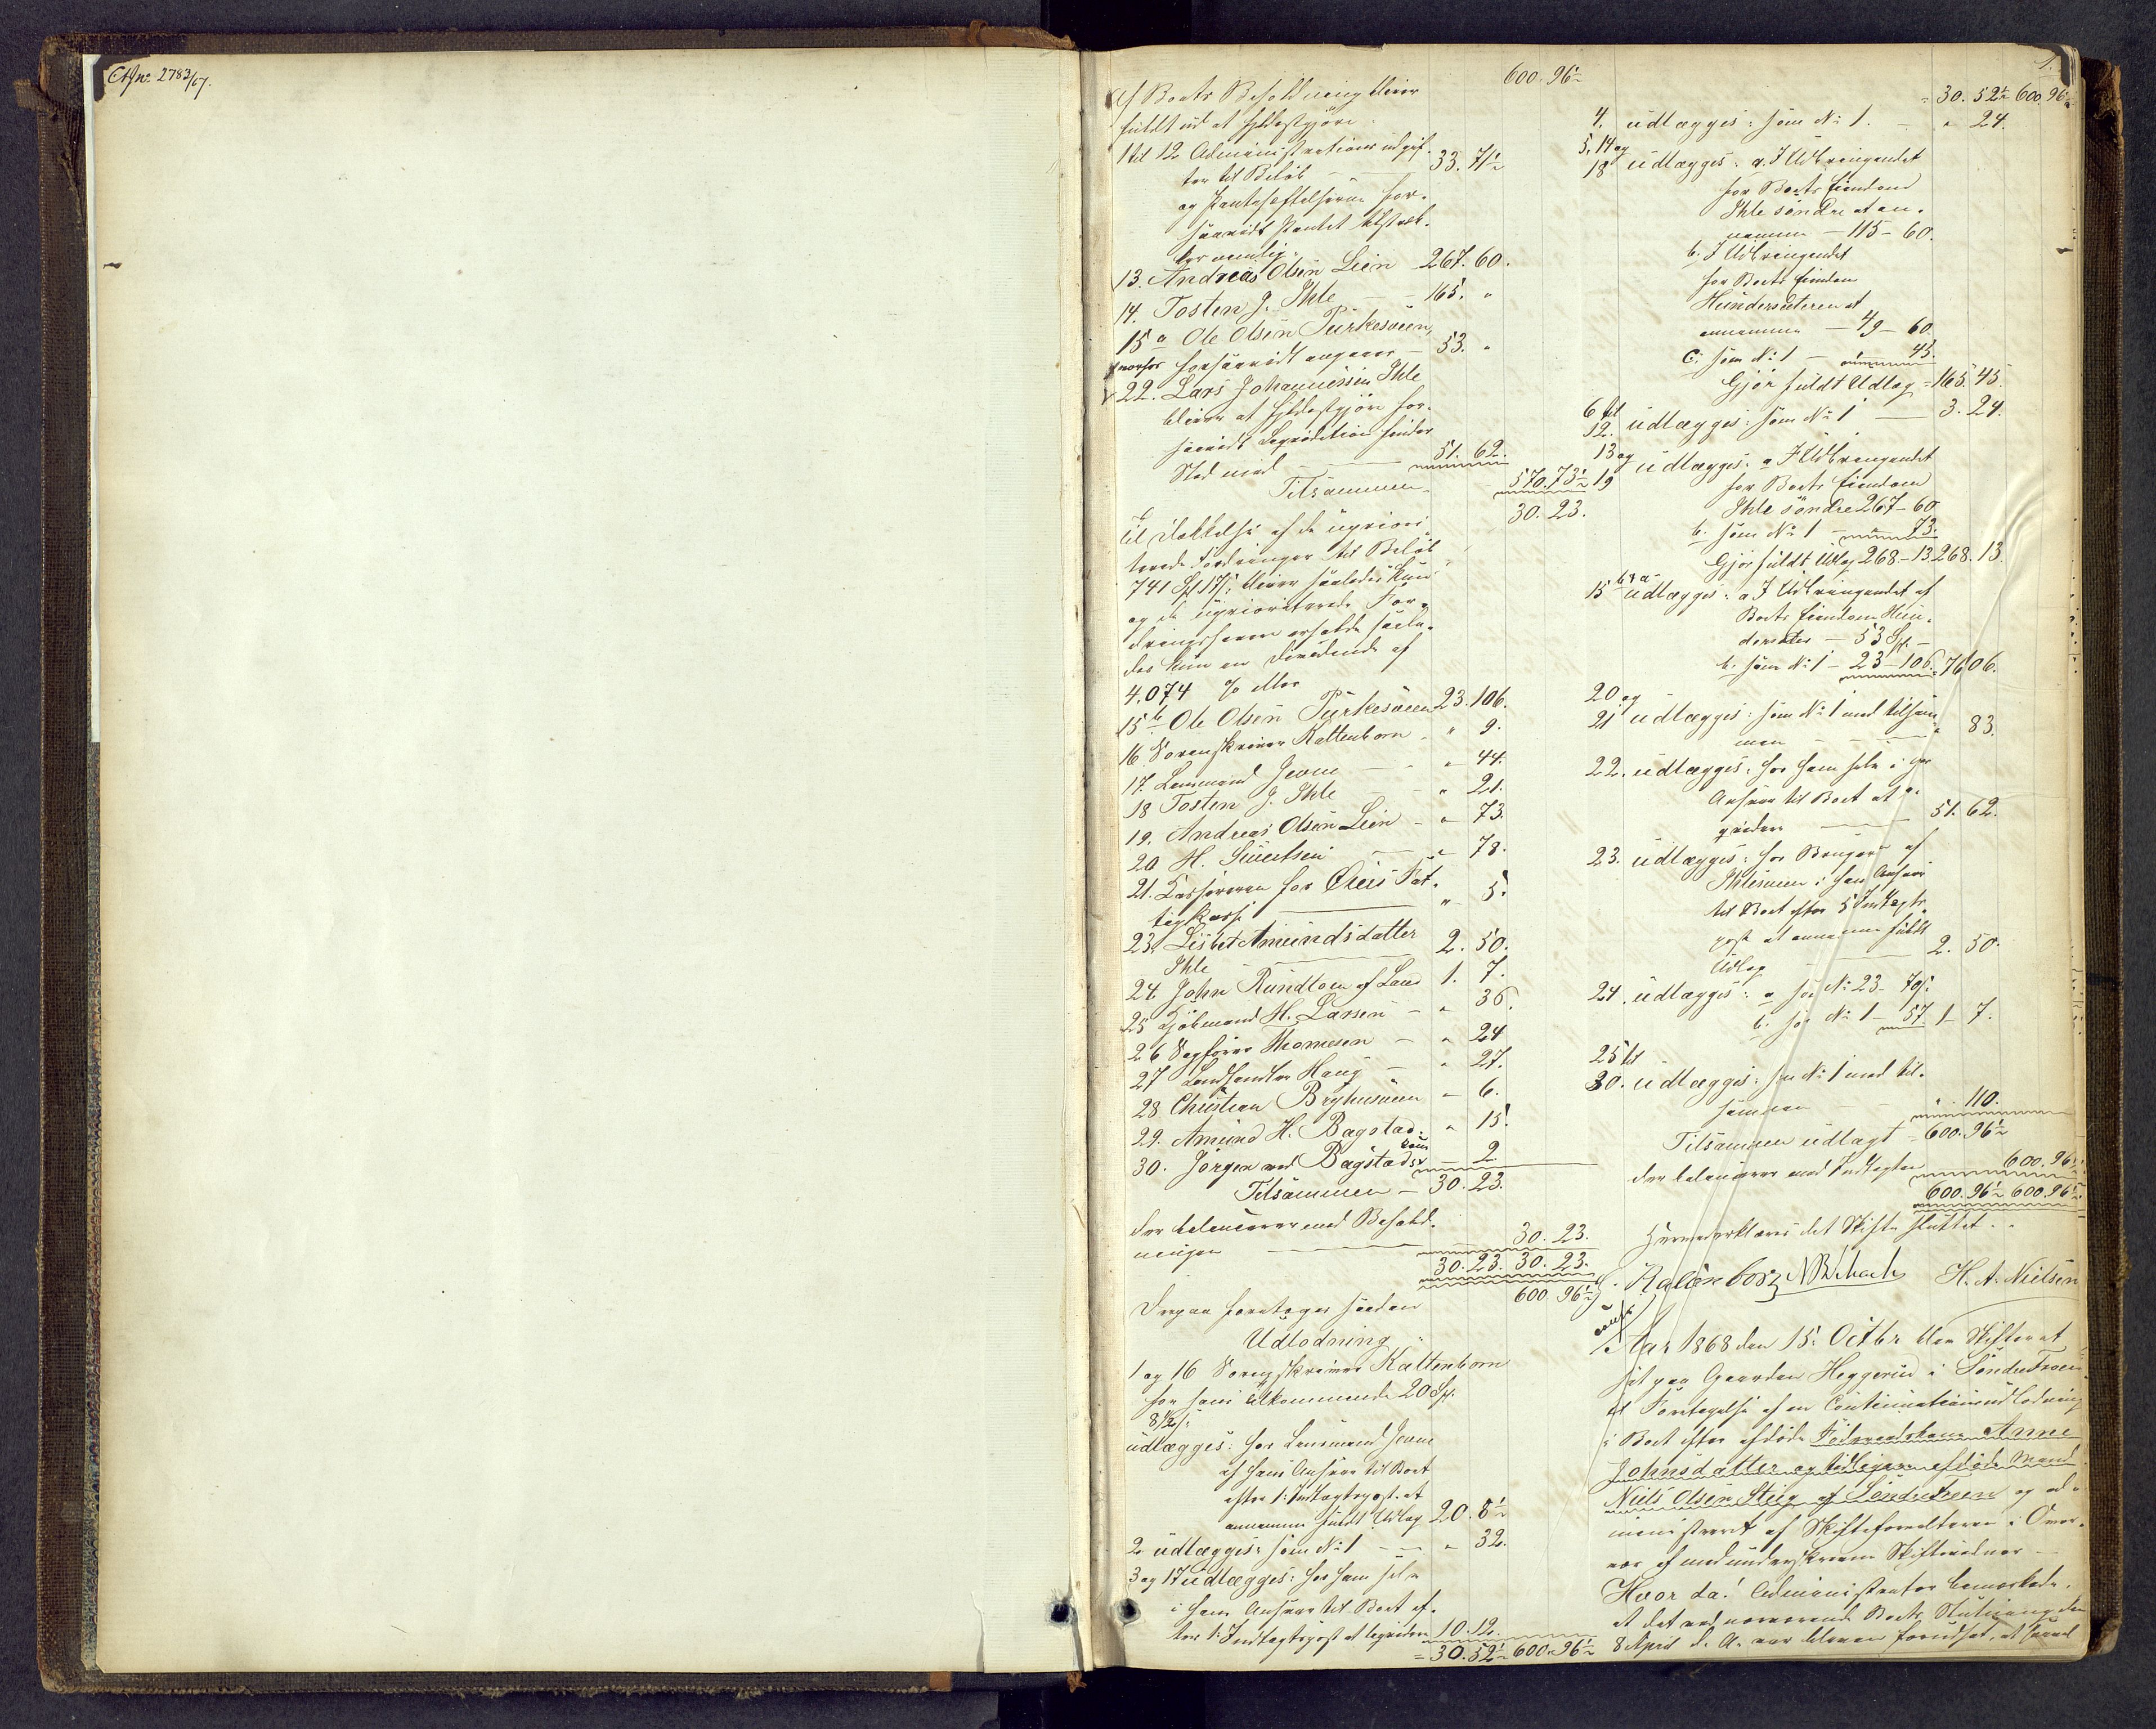 Cfr no 2783/57.
1.
600. 96½
Af Boets Beholdning bliver
fuldt ud at fyldestgjøre
1 til 12 Administrationsudgif-
ter til Beløb — 33. 71½
og Pantehæftelserne for-
saavidt Pantet tilstræk-
ker nemlig
13. Andreas Olsen Lien 267. 60.
14. Tosten J. Ihle — 165. "
15 a Ole Olsen Purkesveen,
forsaavidt angaaer — 53. "
22. Lars Johannessen Ihle
bliver at fyldestgjøre for-
saavidt Separation finder
Sted med — 51. 62.
Tilsammen — 570. 73½
30. 23.
til Dækkelse af de uprior-
terede Fordringer til Beløb
741 Spd 17 s; bliver saaledes kun
og de uprioriterede For-
dringshavere erholde saale-
des kun en Dividende af
4,074 % eller
15 b Ole Olsen Purkesveen 23. 106.
16 Sorenskriver Kattenborn " 9.
17. Lensmand Jevne — " 44.
18 Tosten J. Ihle " 21.
19. Andreas Olsen Lien - " 73.
20 H. Sivertsen — " 78.
21. Kassereren for Øiers Fat-
tigkasse — " 5.
23. Lisbet Amundsdatter
Ihle — 2. 50.
24. John Rundtom af Land 1. 7.
25 Kjøbmand H. Larsen - " 36.
26 Sagfører Thomesen - " 24
27 Landhandler Haug — " 27.
28 Christian Bryhusveen - 6.
29. Amund H. Bagstad: " 15.
30. Jørgen ved Bagstads — 2
Tilsammen — 30. 23.
der balancerer med Behold-
ningen — 30. 23.
30. 23. 30. 23.
600 96½
Derpaa foretoges saadan
Udlodning:
1 og 16 Sorenskriver Kattenborn
for hans tilkommende 20 Sp.
8½ s:
udlægges: hos Lensmand Jevne
af hans Ansvar til Boet
efter 1. Indtægtspost at
annamme fuldt Udlæg 20. 8½
2 udlægges: som No 1 — " 32.
3 og 17 udlægges: hos ham selv
i hans Ansvar til Boet ef-
ter 1. Indtægtspost at beregne 10. 12.
= 30. 52½ 600. 96½
= 30. 52½ 600. 96½
4. udlægges: som No 1. — " 24.
5. 14 og
18 udlægges: a. I Udbringendet
for Boets Eiendom
Ihle søndre at an-
namme — 115 - 60.
b. I Udbringendet
for Boets Eiendom
Hundersæteren at
annamme — 49 - 60
c. som No 1 — " 45.
Gjør fuldt Udlæg = 165. 45.
6 til
12. udlægges: som No 1 — 3. 24.
13 og
19 udlægges: a I Udbringendet
for Boets Eiendom
Ihle søndre 267 - 60
b. som No 1 — " 73.
Gjør fuldt Udlæg 268 - 13 268. 13.
15 a & b udlægges: a I Udbringendet af
Boets Eiendom Hun-
dersæter — 53 Sp. -
b. som No 1 - 23 - 106. 76. 106.
20 og
21 udlægges: som No 1 med tilsam-
men — " 83.
22. udlægges: hos ham selv i
Ansvar til Boet at
— 51. 62.
23. udlægges: hos Brugeren af
Ihlesveen i hans Ansvar
til Boet efter 5 Indtægts-
post at annamme fuldt
Udlæg — 2. 50.
24. udlægges: a hos No 23 - 70 s
b. hos No 1 - 57 1 - 7.
25 til
30. udlægges: som No 1 med til-
sammen — " 110.
Tilsammen udlagt = 600. 96½
der balancerer med Indtægten 600. 96½
600. 96½ 600. 96½
Hermed erklæres det Skifte sluttet.
H. A. Nielsen
Aar 1868 den 15. Octbr blev Skifteret
sat paa Gaarden Heggerud i Søndre Froen
til Foretagelse af en Continuationsudlodning
i Boet efter afdøde Føderaadskone Anne
Johnsdatter og tidligere afdøde Mand
Niels Olsen Stuig af Søndre Froen og ad-
ministreret af Skifteforvalteren i Over-
vær af medunderskrevne Skiftevidner —
Hvor da! Administrator bemærkede,
at det ved nærværende Boets Slutning den
8 April d. A. var bleven forudsat, at